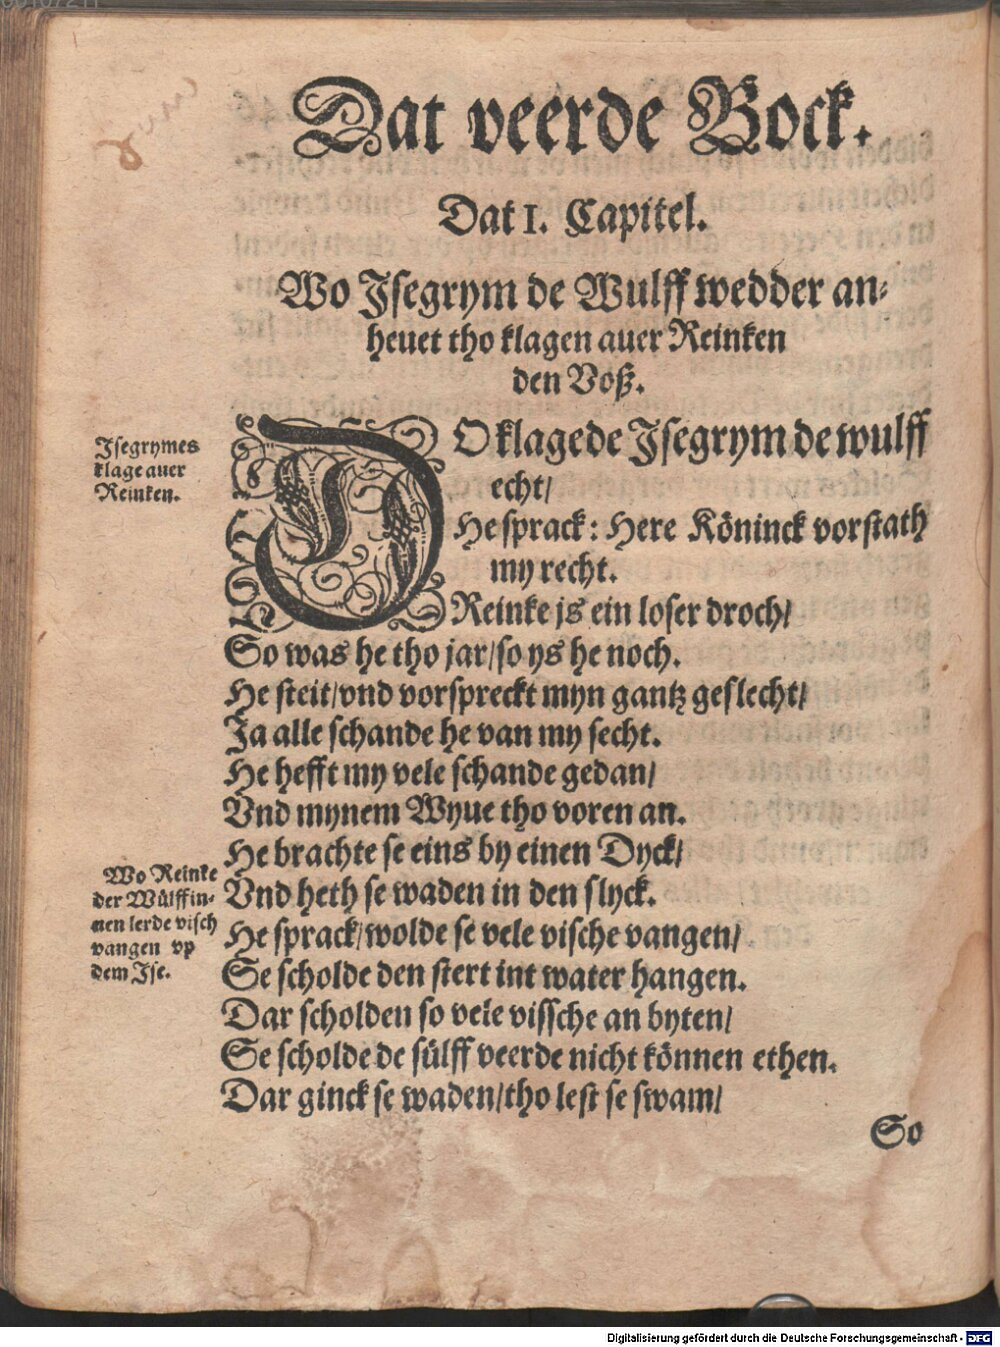 Dat veerde Bock.
Dat 1. Capitel.
Wo Jsegrym de Wulff wedder an-
heuet tho klagen auer Reinken
den Voß.
Jsegrymes
klage auer
Reinken.
DO klagede Jsegrym de wulff
echt/
He sprack: Here Köninck vorstath
my recht.
Reinke js ein loser droch/
So was he tho jar/so ys he noch.
He steit/vnd vorspreckt myn gantz geslecht/
Ja alle schande he van my secht.
He hefft my vele schande gedan/
Vnd mynem Wyue tho voren an.
He brachte se eins by einen Dyck/
Wo Reinke
der Wülffin-
nen lerde visch
vangen vp
dem Jse.
Vnd heth se waden in den slyck.
He sprack/wolde se vele vische vangen/
Se scholde den stert int water hangen.
Dar scholden so vele vissche an byten/
Se scholde de sülff veerde nicht können ethen.
Dar ginck se waden/tho lest se swam/
So
Digitalisierung gefördert durch die Deutsche Forschungsgemeinschaft - DFG